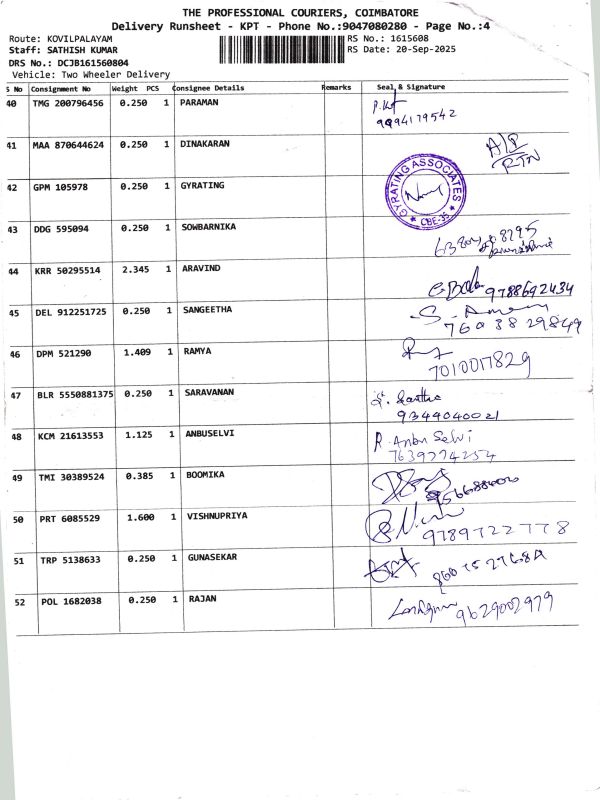 THE PROFESSIONAL COURIERS, COIMBATORE
Delivery Runsheet - KPT - Phone No.:9047080280 - Page No.:4
Route: KOVILPALAYAM RS No.: 1615608
Staff: SATHISH KUMAR RS Date: 20-Sep-2025
DRS No.: DCJB161560804
Vehicle: Two Wheeler Delivery
S No Consignment No Weight PCS Consignee Details Remarks Seal & Signature
40 TMG 200796456 0.250 1 PARAMAN
9994179542
41 MAA 870644624 0.250 1 DINAKARAN
RTN
42 GPM 105978 0.250 1 GYRATING GYRATING ASSOCIATES CBE-35
43 DDG 595094 0.250 1 SOWBARNIKA
44 KRR 50295514 2.345 1 ARAVIND
9788692434
45 DEL 912251725 0.250 1 SANGEETHA
7603829849
46 DPM 521290 1.409 1 RAMYA
7010017829
47 BLR 5550881375 0.250 1 SARAVANAN
9344040021
48 KCM 21613553 1.125 1 ANBUSELVI R. Anbu Selvi
7639274254
49 TMI 30389524 0.385 1 BOOMIKA
50 PRT 6085529 1.600 1 VISHNUPRIYA
9789722778
51 TRP 5138633 0.250 1 GUNASEKAR
52 POL 1682038 0.250 1 RAJAN
9629002979